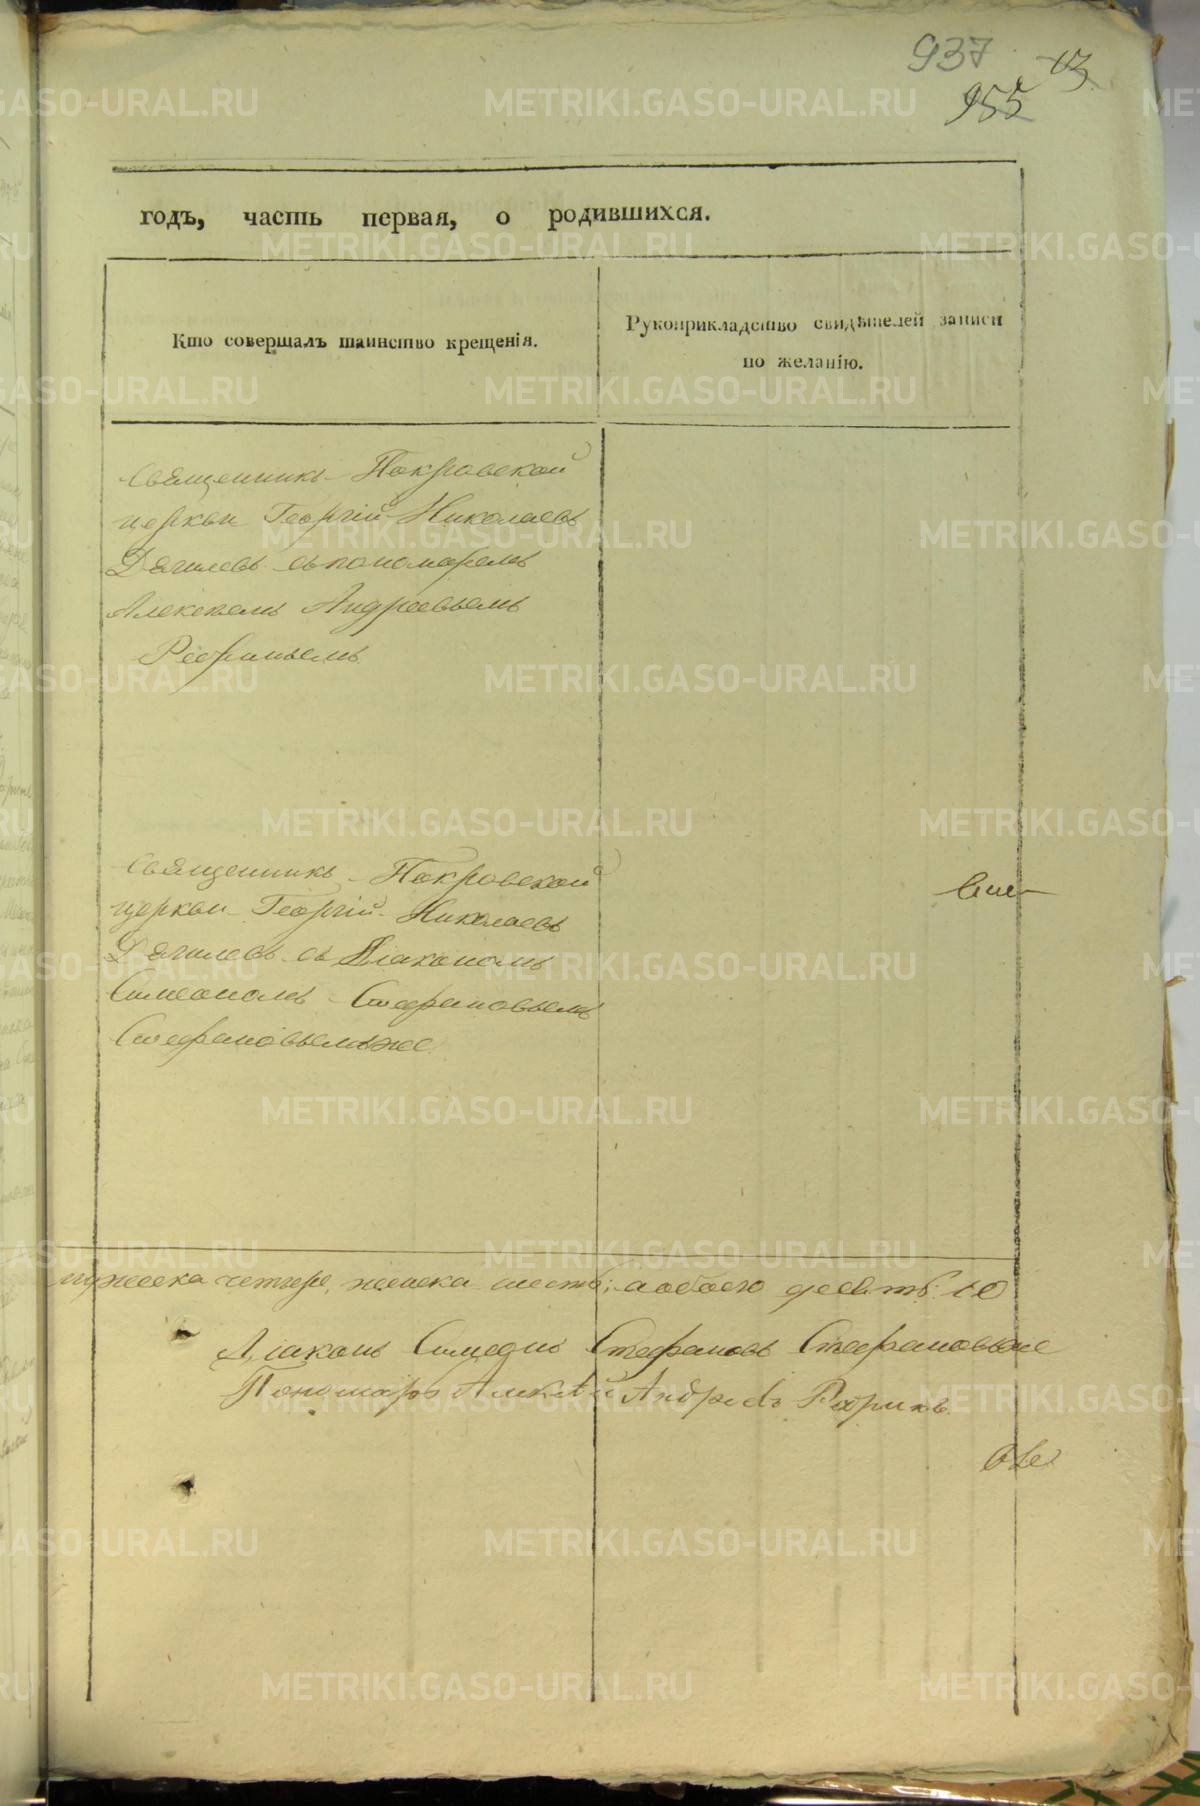 937
955
годъ, часть первая, о родившихся.
Кто совершалъ таинство крещенія.
Рукоприкладство свидѣтелей записи
по желанію.
Священникъ Покровской
церкви Георгій Николаевъ
Дягилевъ съ пономаремъ
Алексѣемъ Андреевымъ
Священникъ Покровской
церкви Георгій Николаевъ
Дягилевъ съ Діакономъ
Симеономъ Стефановымъ
Стефановымъ же
мужеска четыре, женска шесть; а обоего десять 10
Діаконъ Симеонъ Стефановъ Стефановъ же
Пономарь Алексѣй Андреевъ
METRIKI.GASO-URAL.RU